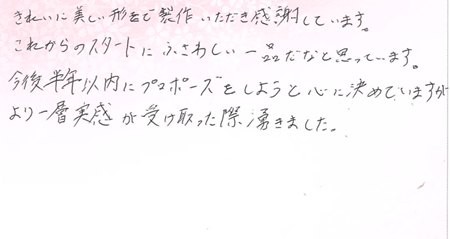 きれいに美しい形まで製作いただき感謝しています。
これからのスタートにふさわしい一品だなと思っています。
今後半年以内にプロポーズをしようと心に決めていますが
より一層実感が受け取った際湧きました。